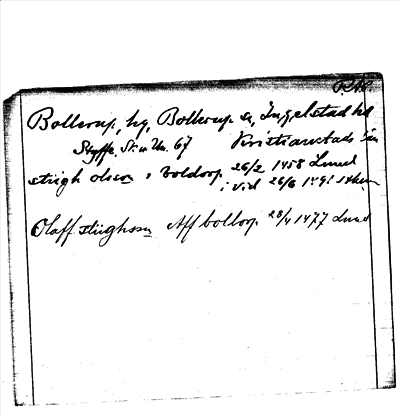 R.A.
Bollerup, hg, Bollerup sn, Ingelstad hd
Styffe, Sk. u. Un. 67 Kristianstads län
stiigh olson i boldorp 26/2 1458 Lund
i vid 26/6 1491 Sthlm
Olaff stiighson Aff bollorp 28/4 1477 Lund